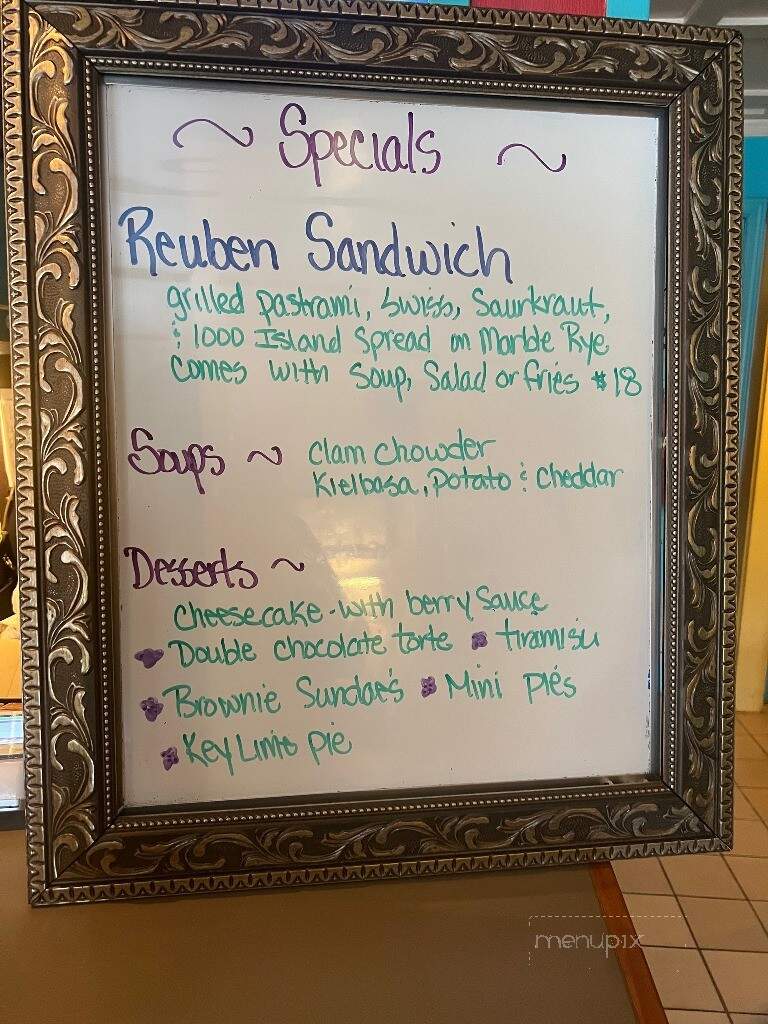 ~ Specials ~
Reuben Sandwich
grilled pastrami, Swiss, Saurkraut,
& 1000 Island Spread on Marble Rye
comes with Soup, Salad or fries $18
Soups ~ Clam Chowder
Kielbasa, Potato & Cheddar
Desserts ~
Cheesecake - with berry Sauce
Double chocolate torte tiramisu
Brownie Sundae's Mini Pies
Key Lime Pie
menupix